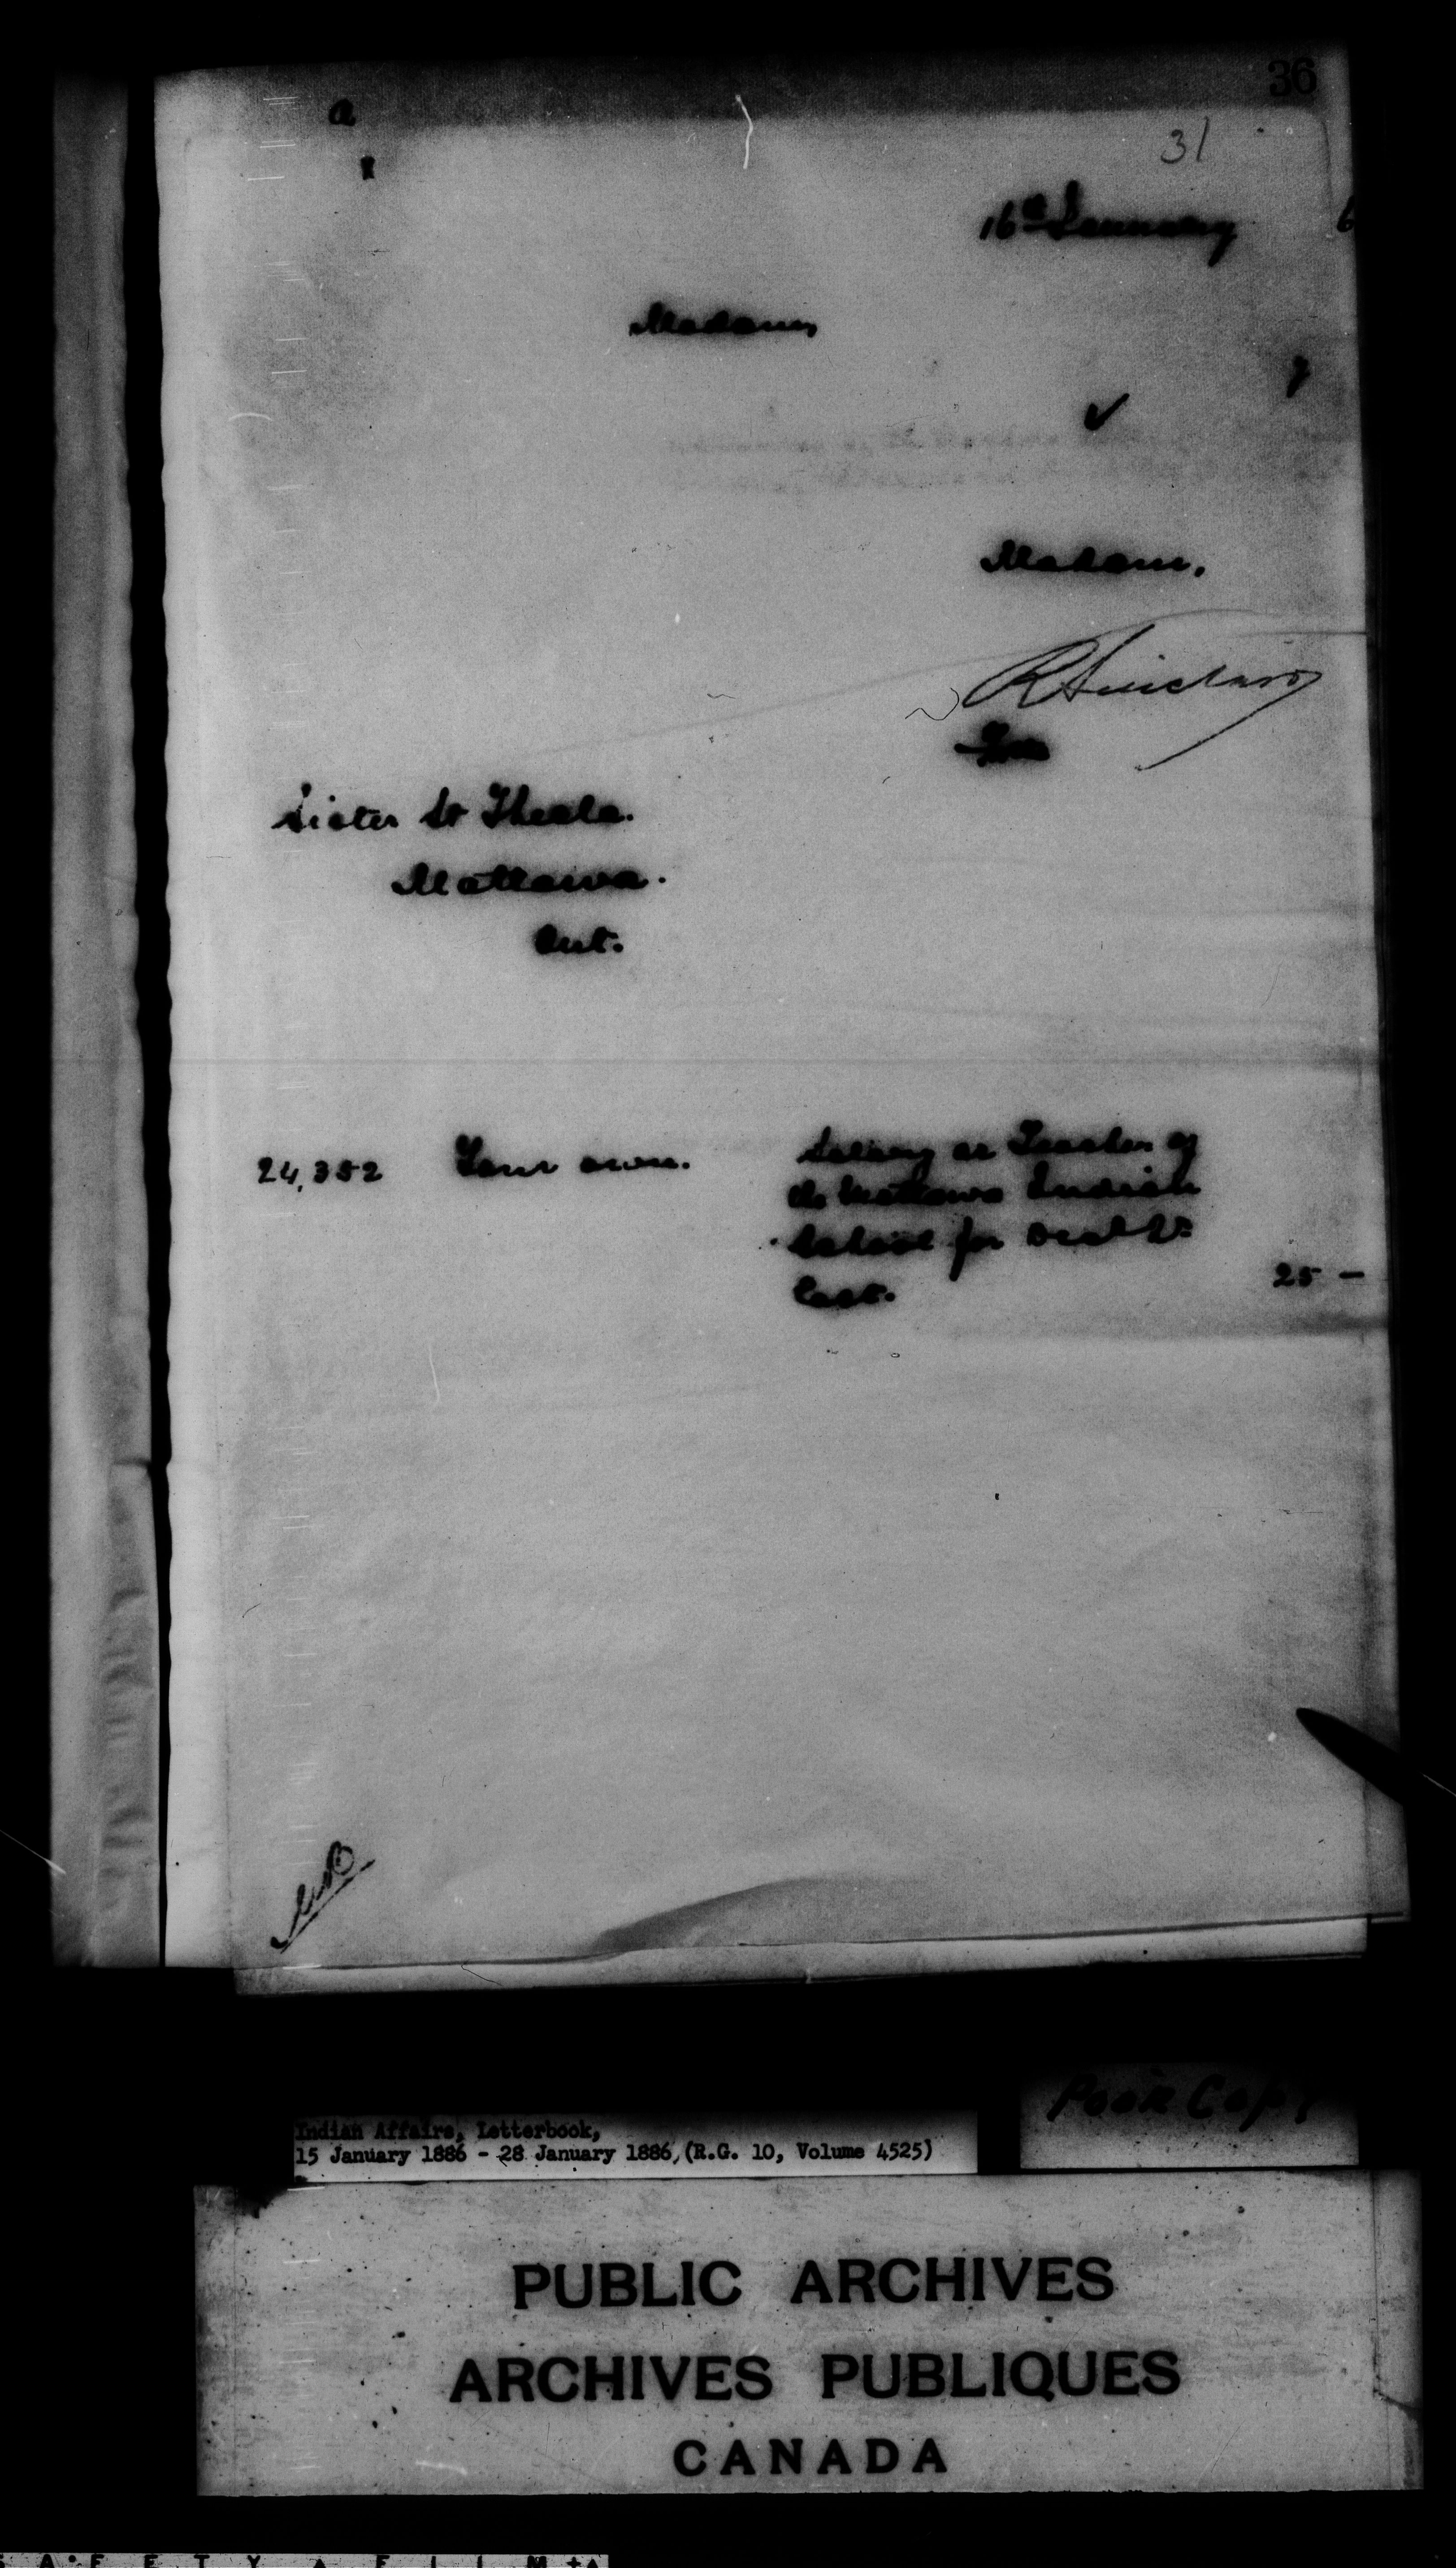 36
31
a
16th January 6
Madam,
y
✓
Madam,
R Sinclair
For
Sister St Thecla.
Mattawa.
Ont.
24,352 Your own. Salary as Teacher of
the Mattawa Indian
School for Decr Qr
last. 25 —
Poor Copy
Indian Affairs, Letterbook,
15 January 1886 - 28 January 1886, (R.G. 10, Volume 4525)
PUBLIC ARCHIVES
ARCHIVES PUBLIQUES
CANADA
SAFETY FILM